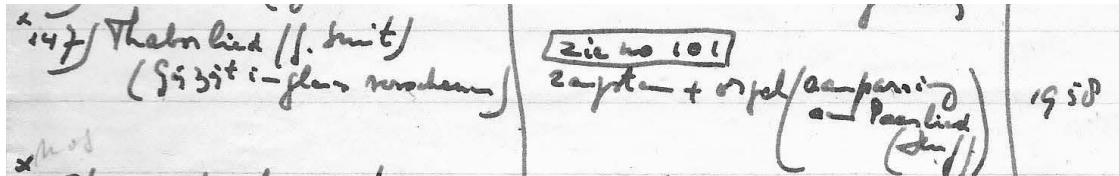 147) Thaborlied (J. Smit)
(Gij zijt in glans verschenen)
zie no 101
zangstem + orgel (aanpassing
aan Paaslied
1958